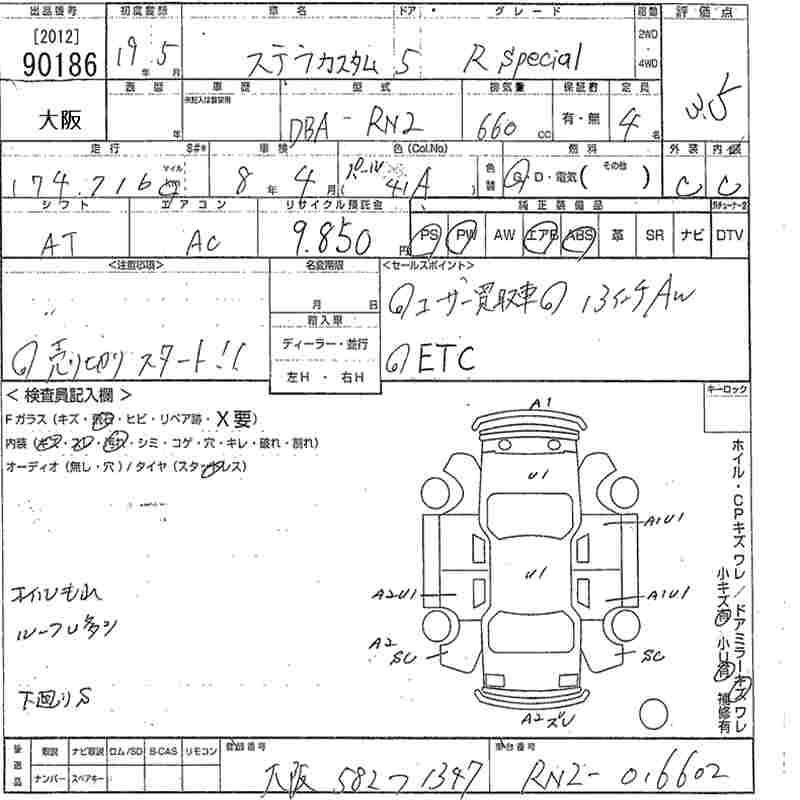 出品番号 初度登録 車名 ドア グレード 駆動 評価点
[2012]
90186
19年 5月 ステラカスタム 5 R Special 2WD・4WD 3.5
大阪
車歴 型式 排気量 保証書 定員
年 ※記入は営業用 DBA-RN2 660 cc 有・無 4名
走行 S#* 車検 色(Col.No) 色替 燃料 外装 内装
174,716 マイル km 8年 4月 パール 41A G・D・電気( その他 ) C C
シフト エアコン リサイクル預託金 純正装備品
AT AC 9.850円 PS PW AW エアB ABS 革 SR ナビ DTV
<注意事項> 名変期限 <セールスポイント>
月 日 ◎ユーザー買取車◎ 13インチAW
輸入車
◎売り切りスタート!! ディーラー・並行 ◎ETC
左H・右H
<検査員記入欄> キーロック
Fガラス(キズ・飛石・ヒビ・リペア跡・X要)
内装(キズ・スレ・汚れ・シミ・コゲ・穴・キレ・破れ・割れ)
オーディオ(無し・穴)/タイヤ(スタッドレス)
A1
U1
A1U1
U1
A2U1
A1U1
A2
SC
SC
A2ズレ
オイルもれ
ルーフU多シ
下廻りS
ホイル・CPキズ ワレ/ドアミラーキズ ワレ
小キズ有 小U有 補修有
後送品 取説 ナビ取説 ロム/SD B-CAS リモコン 登録番号 車台番号
ナンバー スペアキー 大阪 582 つ 1347 RN2-016602